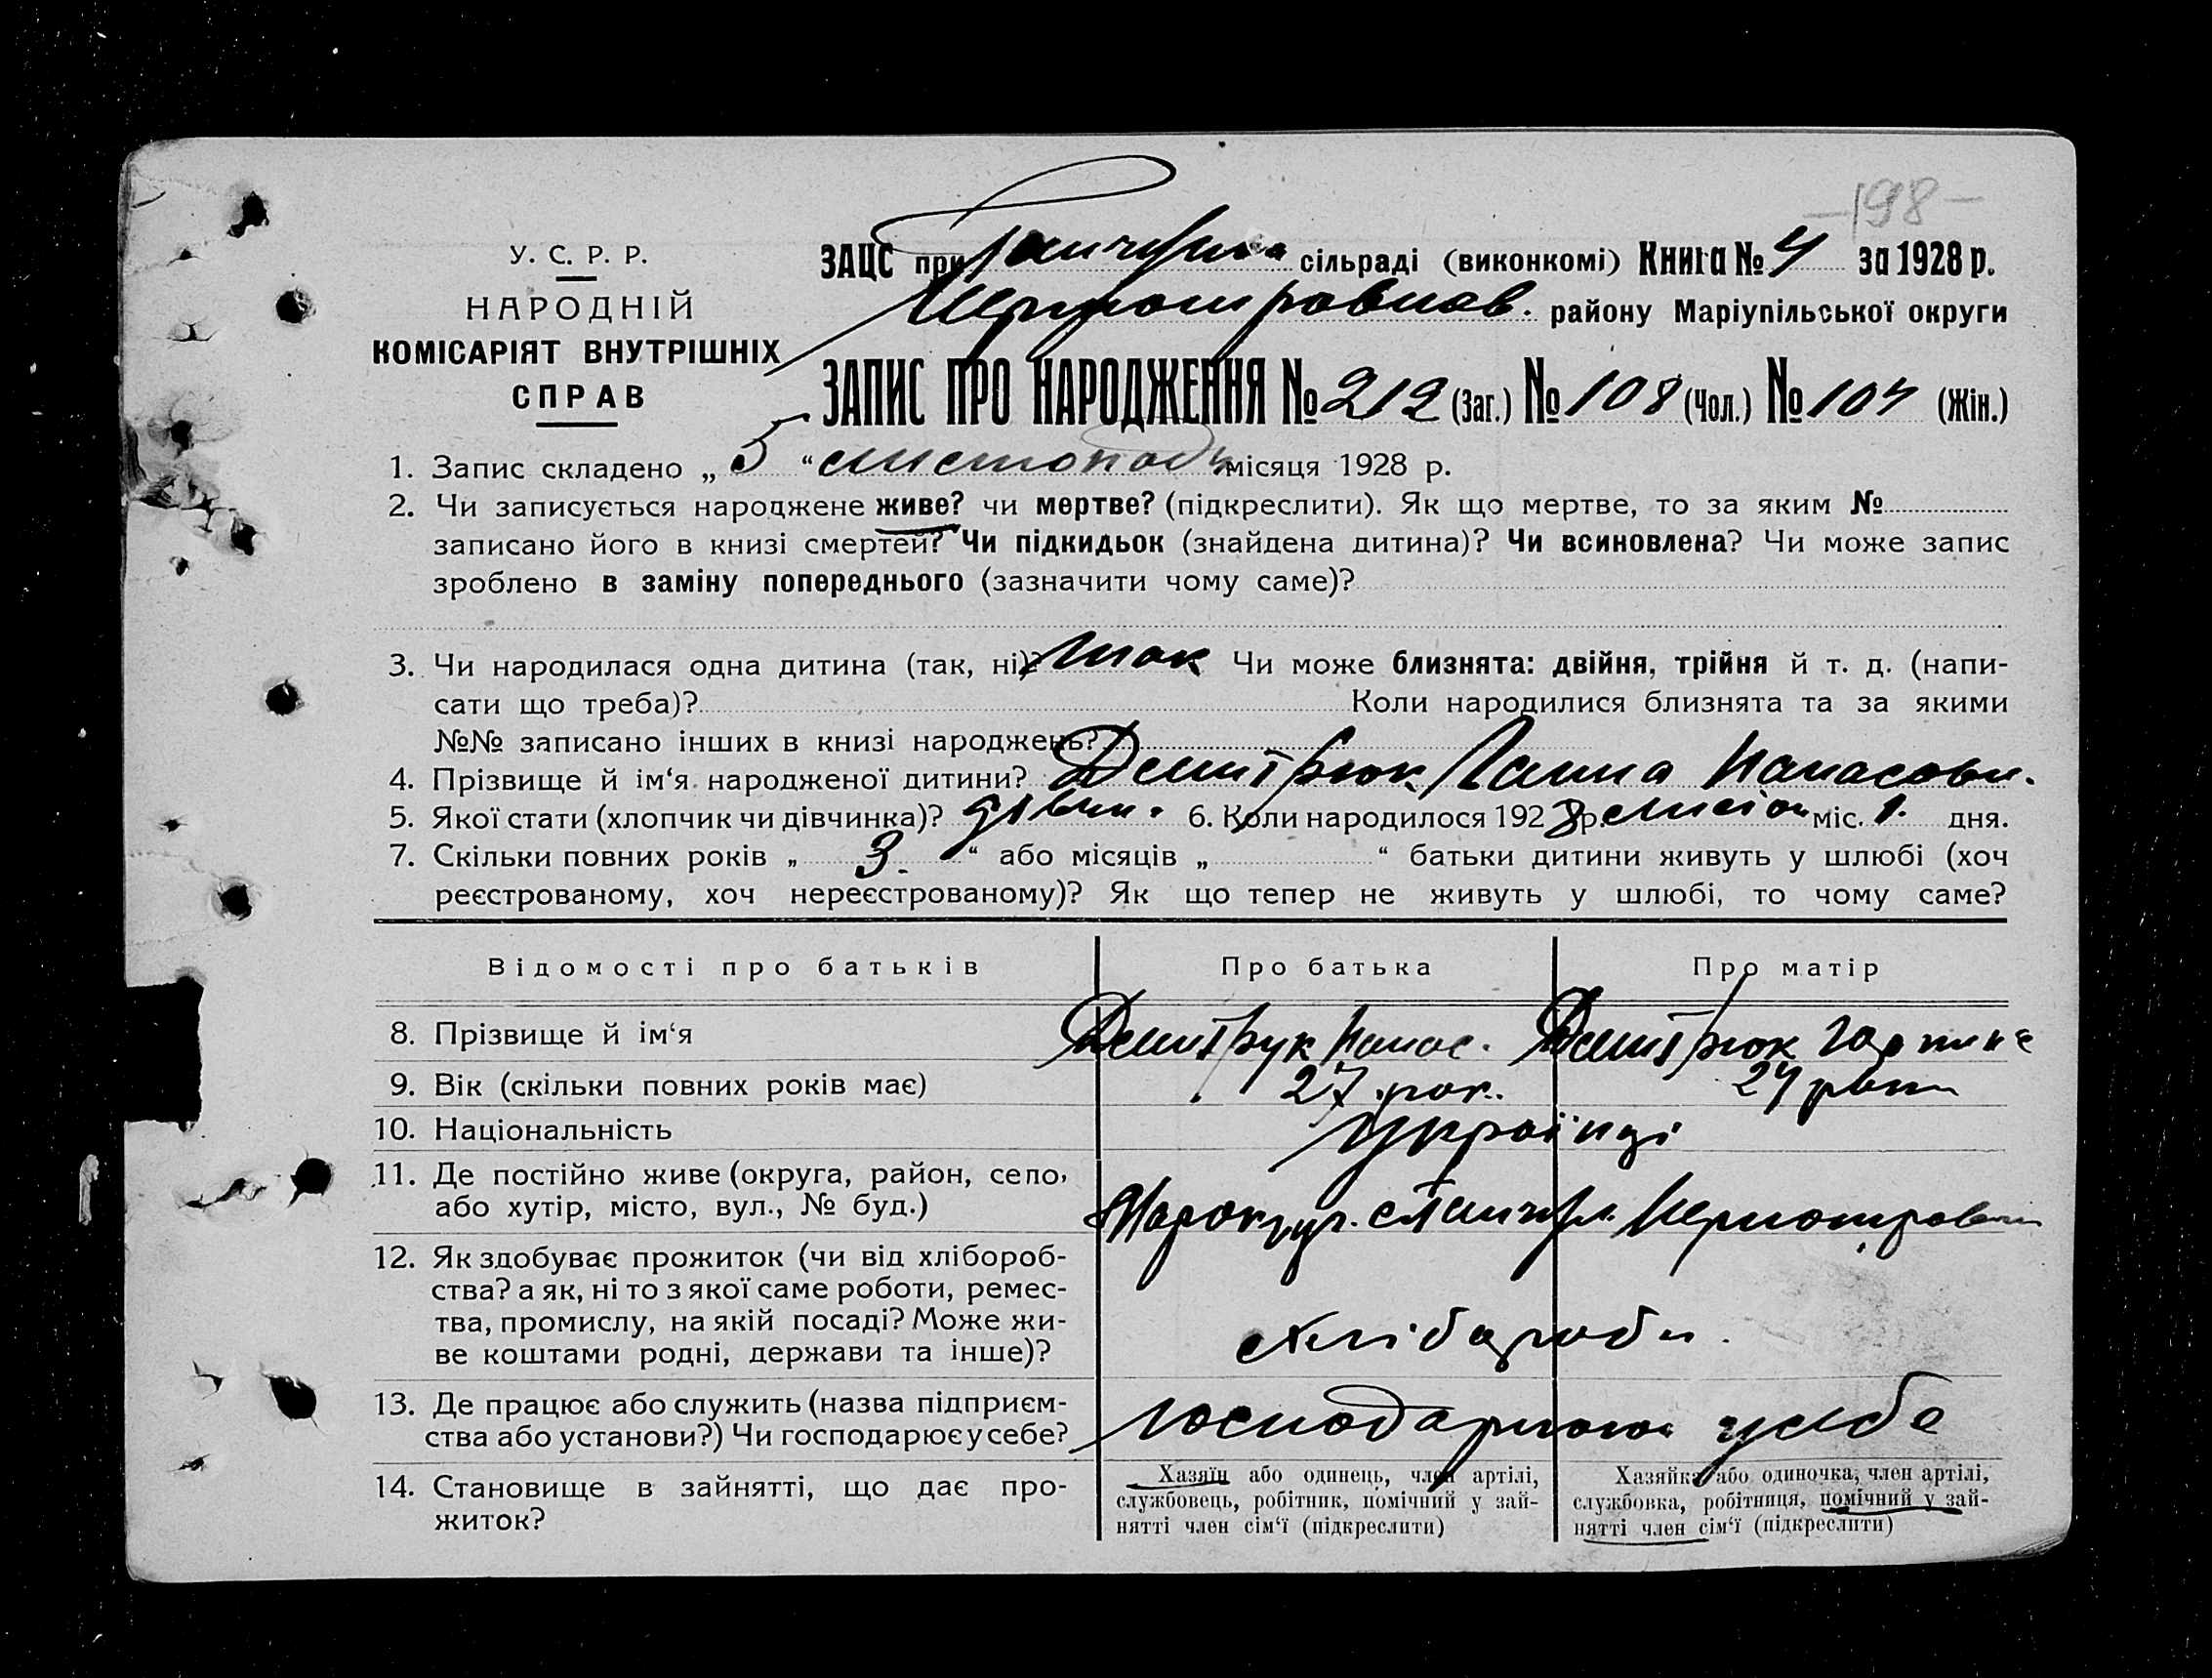 -198-
У. С. Р. Р.
НАРОДНІЙ
КОМІСАРІЯТ ВНУТРІШНІХ
СПРАВ
ЗАЦС при сільраді (виконкомі) Книга № 4 за 1928 р.
району Маріупільської округи
ЗАПИС ПРО НАРОДЖЕННЯ № 212 (Заг.) № 108 (Чол.) № 104 (Жін.)
1. Запис складено „ 5 “ листопада місяця 1928 р.
2. Чи записується народжене живе? чи мертве? (підкреслити). Як що мертве, то за яким №
записано його в книзі смертей? Чи підкидьок (знайдена дитина)? Чи всиновлена? Чи може запис
зроблено в заміну попереднього (зазначити чому саме)?
3. Чи народилася одна дитина (так, ні)? так Чи може близнята: двійня, трійня й т. д. (напи-
сати що треба)? Коли народилися близнята та за якими
№№ записано інших в книзі народжень?
4. Прізвище й ім‘я народженої дитини? Дмитрюк Ганна Панасовн.
5. Якої стати (хлопчик чи дівчинка)? дівчи. 6. Коли народилося 1928 р. листоп міс. 1. дня.
7. Скільки повних років „ 3. “ або місяців „ “ батьки дитини живуть у шлюбі (хоч
реєстрованому, хоч нереєстрованому)? Як що тепер не живуть у шлюбі, то чому саме?
Відомості про батьків Про батька Про матір
8. Прізвище й ім‘я Дмитрук Панас. Дмитрюк
9. Вік (скільки повних років має) 27 рок. 24 роки
10. Національність Українці
11. Де постійно живе (округа, район, село,
або хутір, місто, вул., № буд.)
12. Як здобуває прожиток (чи від хлібороб-
ства? а як, ні то з якої саме роботи, ремес-
тва, промислу, на якій посаді? Може жи-
ве коштами родні, держави та інше)? хлібороби.
13. Де працює або служить (назва підприєм-
ства або установи?) Чи господарює у себе? господарюють у себе
14. Становище в зайнятті, що дає про-
житок?
Хазяїн або одинець, член артілі,
службовець, робітник, помічний у зай-
нятті член сім‘ї (підкреслити)
Хазяйка або одиночка, член артілі,
службовка, робітниця, помічний у зай-
нятті член сім‘ї (підкреслити)